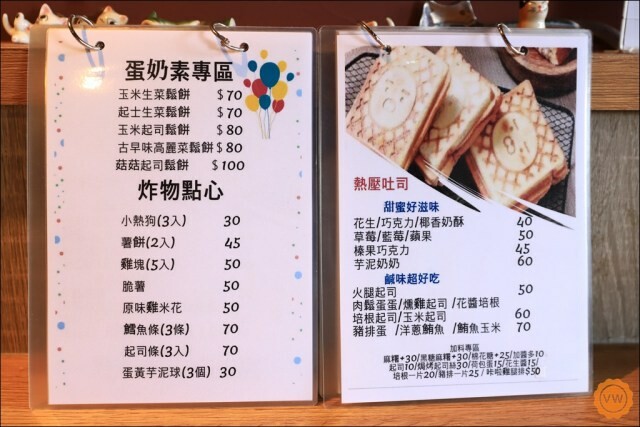 蛋奶素專區
玉米生菜鬆餅 $70
起士生菜鬆餅 $70
玉米起司鬆餅 $80
古早味高麗菜鬆餅 $80
菇菇起司鬆餅 $100
炸物點心
小熱狗(3入) 30
薯餅(2入) 45
雞塊(5入) 50
脆薯 50
原味雞米花 50
鱈魚條(3條) 70
起司條(3入) 70
蛋黃芋泥球(3個) 30
熱壓吐司
甜蜜好滋味
花生/巧克力/椰香奶酥 40
草莓/藍莓/蘋果 50
榛果巧克力 45
芋泥奶奶 60
鹹味超好吃
火腿起司 50
肉鬆蛋蛋/燻雞起司/花醬培根
培根起司/玉米起司 60
豬排蛋/洋蔥鮪魚/鮪魚玉米 70
加料專區
麻糬+30/黑糖麻糬+30/棉花糖+25/加醬多10
起司10/焗烤起司絲30/荷包蛋15/花生醬15/
培根一片20/豬排一片25/咔啦雞腿排$50
VW